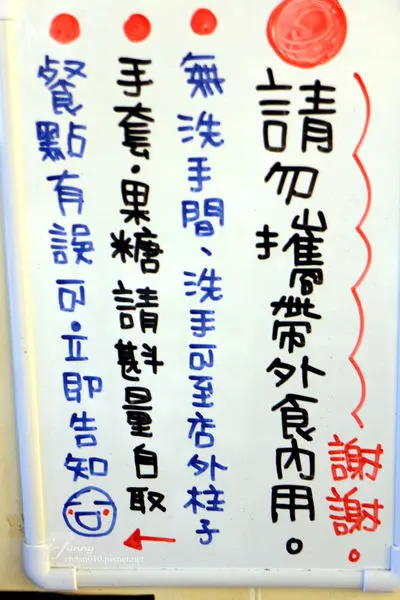 請勿攜帶外食內用。
謝謝。
無洗手間、洗手可至店外柱子
手套．果糖請斟量自取
餐點有誤可．立即告知
Funny